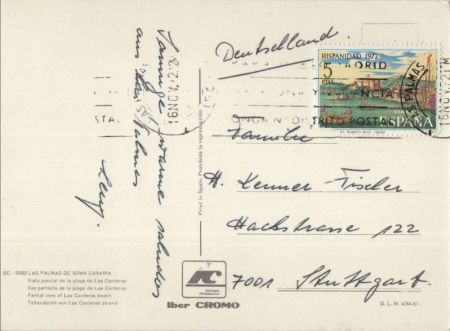 Deutschland.
HISPANIDAD 1972
5
PTAS
ESPAÑA
LAS PALMAS
16 NOV. 72
MADRID
DISTRITO POSTAL
saludos
aus Las Palmas
Familie
H. Kenner-Fischer
Hackstrasse 122
7001 Stuttgart.
Print in Spain. Prohibida la reproducción
GC - 0093 LAS PALMAS DE GRAN CANARIA
Vista parcial de la playa de Las Canteras
Vue partielle de la plage de Las Canteras
Partial view of Las Canteras beach
Teilansicht von Las Canteras strand
Iber CROMO
D. L. M.